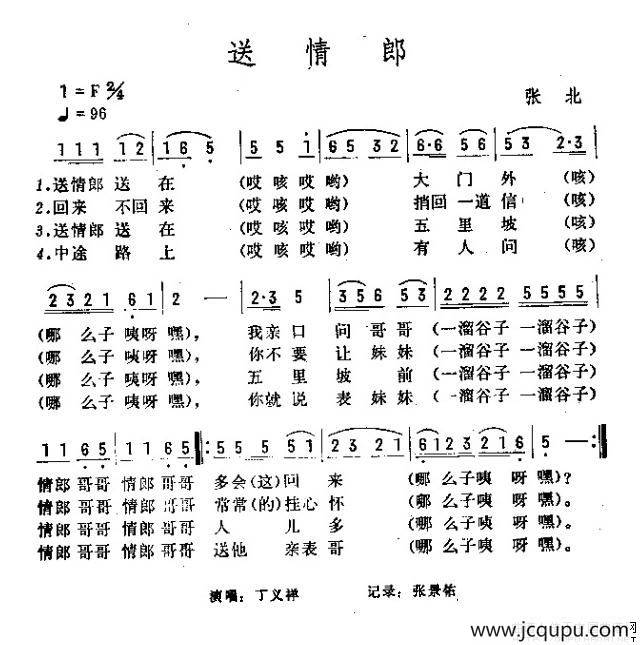 送 情 郎
1 = F 2/4
♩ = 96
张 北
1 1 1 1 2 1 6 5 5 5 i 5 6 3 5 6·6 5 6 5 3 2·3
1.送情郎 送 在 (哎 咳 哎 哟) 大 门 外 (咳)
2.回来 不回 来 (哎 咳 哎 哟) 捎回 一道 信 (咳)
3.送情郎 送 在 (哎 咳 哎 哟) 五 里 坡 (咳)
4.中途 路 上 (哎 咳 哎 哟) 有 人 问 (咳)
2 3 2 1 6 1 2 — 2·3 5 3 5 6 5 3 2 2 2 2 5 5 5 5
(哪 么 子 咦呀 嘿), 我亲 口 问 哥哥 (一溜谷子 一溜谷子)
(哪 么 子 咦呀 嘿), 你不 要 让 妹妹 (一溜谷子 一溜谷子)
(哪 么 子 咦呀 嘿), 五 里 坡 前 (一溜谷子 一溜谷子)
(哪 么 子 咦呀 嘿), 你就 说 表 妹妹 (一溜谷子 一溜谷子)
1 1 6 5 1 1 6 5 :5 5 5 5 1 2 3 2 1 6 1 2 3 2 1 6 5 — :
情郎 哥哥 情郎 哥哥 多会 (这) 回 来 (哪 么子 咦 呀 嘿)?
情郎 哥哥 情郎 哥哥 常常 (的) 挂心 怀 (哪 么子 咦 呀 嘿)。
情郎 哥哥 情郎 哥哥 人 儿 多 (哪 么子 咦 呀 嘿)。
情郎 哥哥 情郎 哥哥 送他 亲表 哥 (哪 么子 咦 呀 嘿)。
演唱:丁义祥 记录:张景佑
www.jcqupu.com